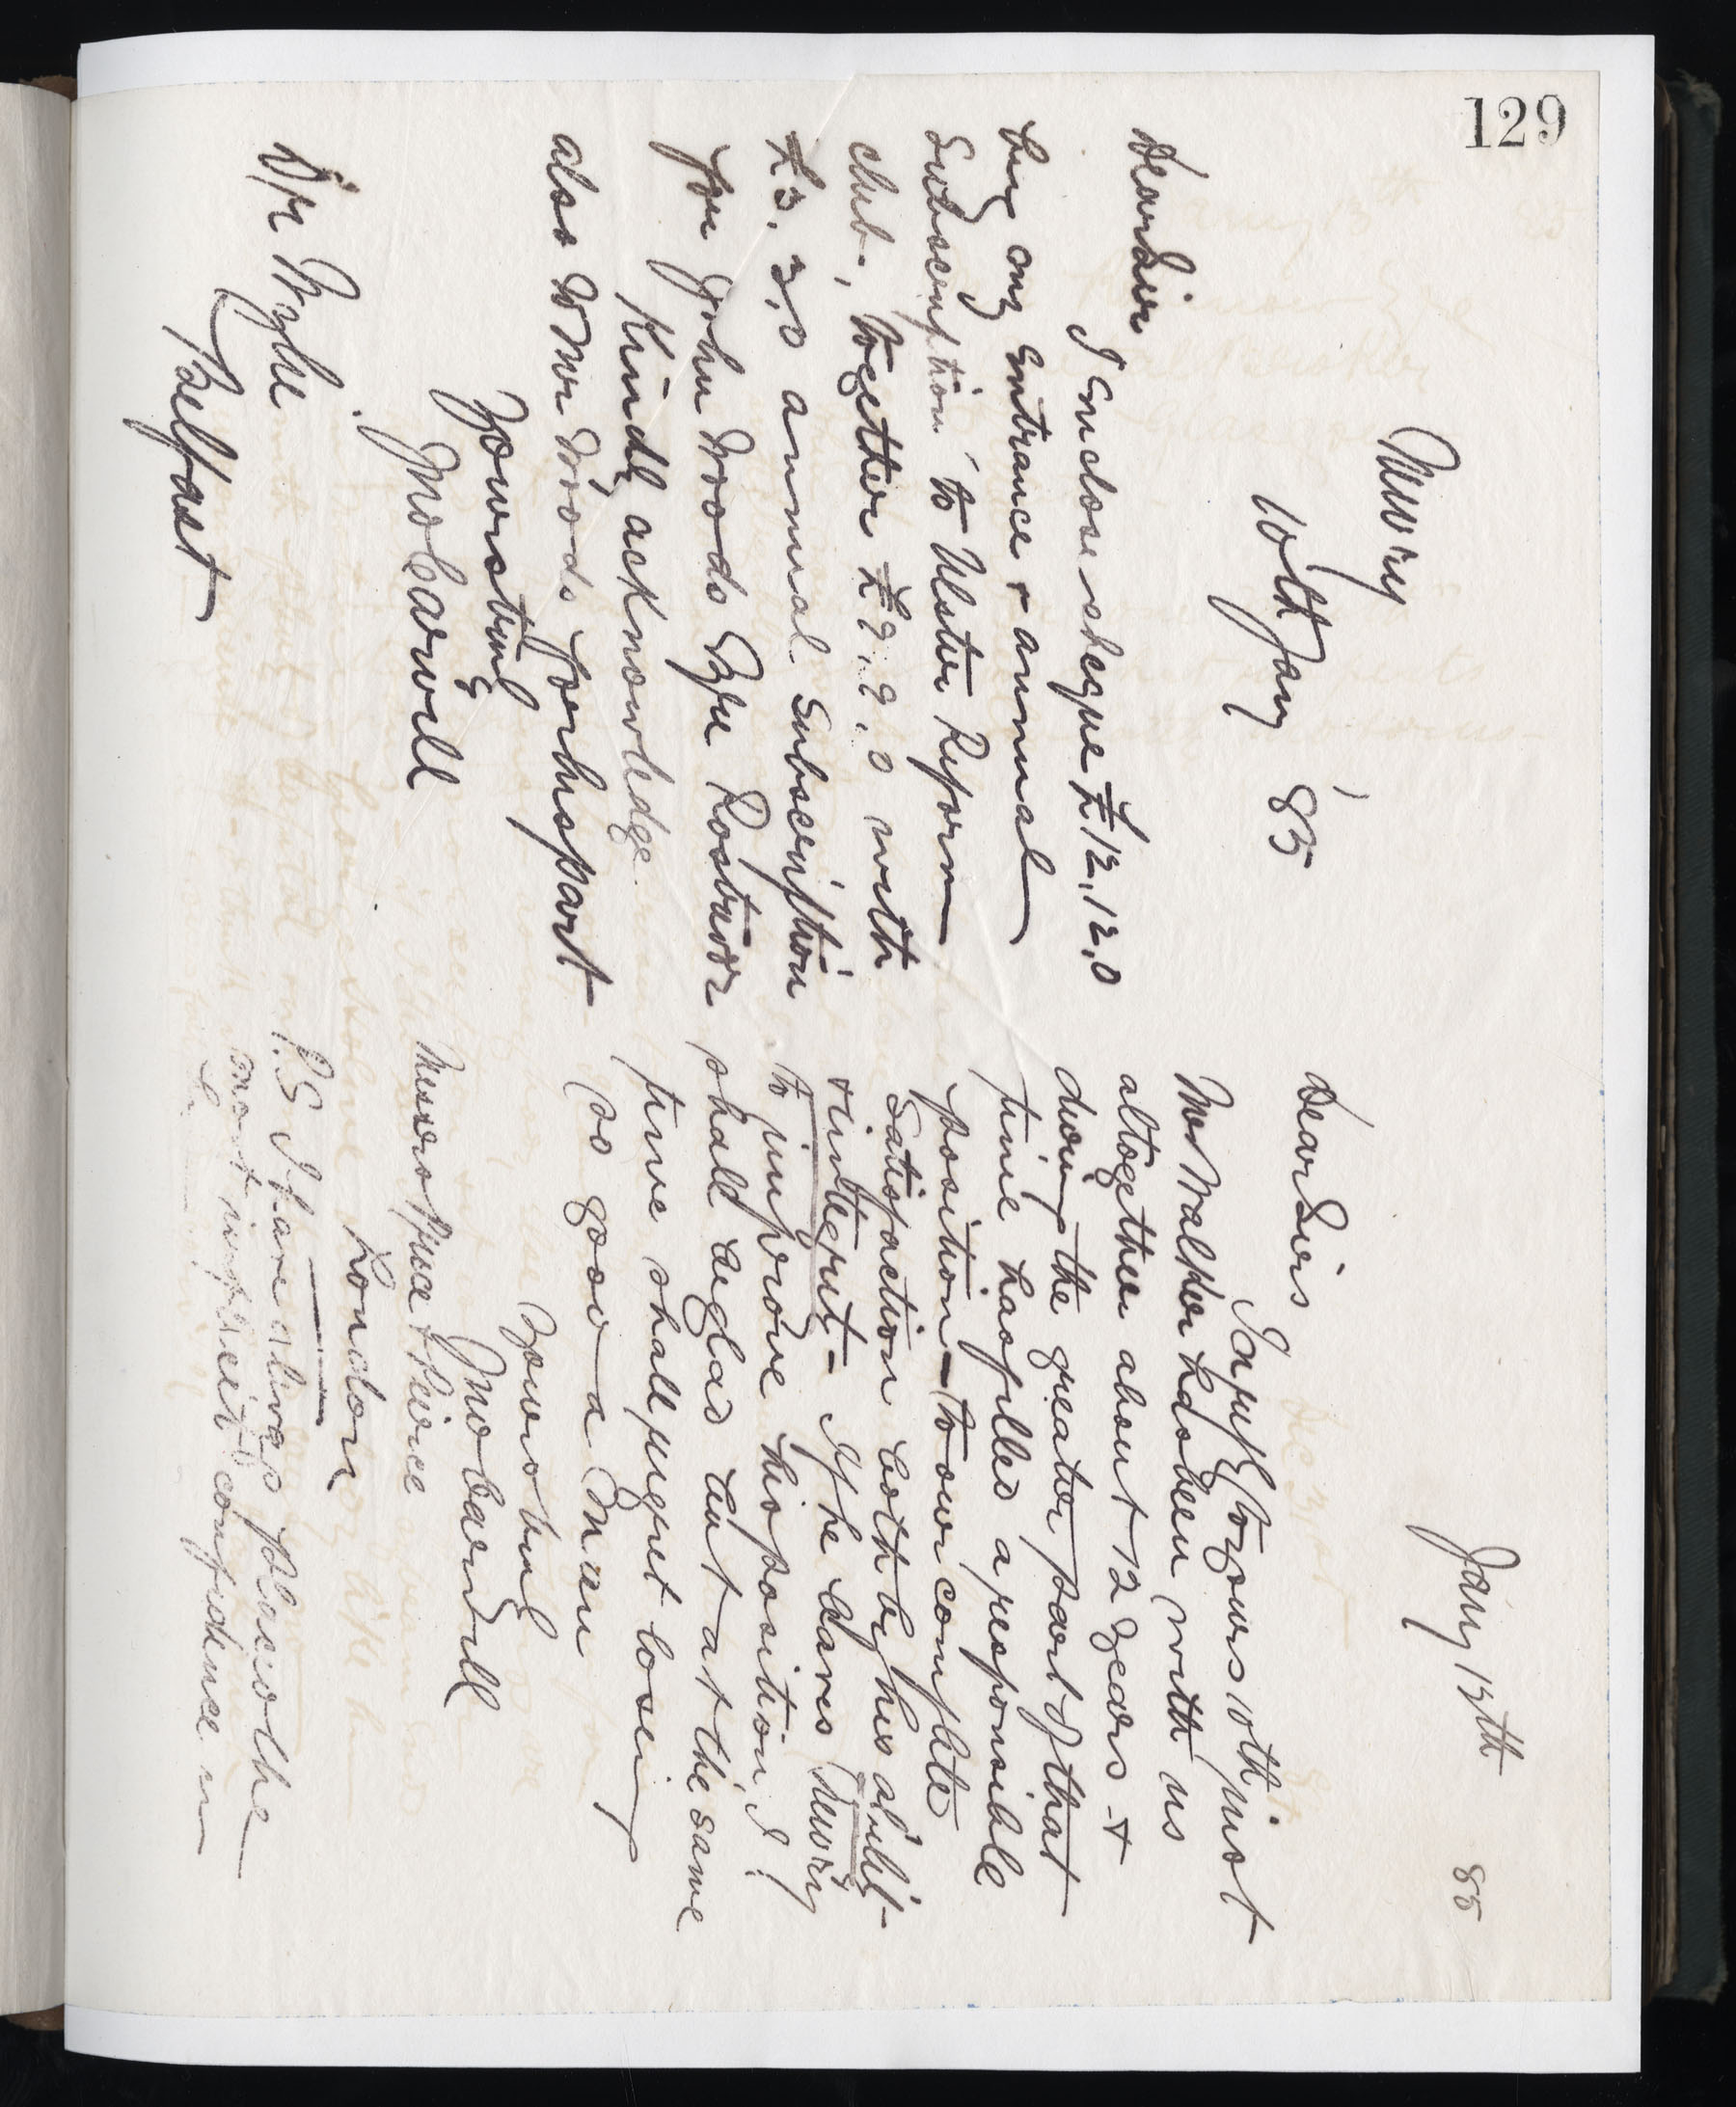 129
Newry
10th Jany 85
Dear Sir
I Enclose cheque £12,12,0
being my Entrance & annual
Subscription to Ulster Reform
club, together £9,9,0 with
£3,3,0 annual Subscription
for John Woods Esqre Rostrevor
Kindly acknowledge
also to Mr Woods for his part
Yours truly
Jno Carvill
W Wylie
Belfast
Jany 13th 85
Dear Sirs
In reply to yours 10th inst
Mr Walker has been with us
altogether about 12 years &
during the greater part of that
time has filled a responsible
position to our complete
Satisfaction both by his ability
& integrity. If he leaves Newry
to improve his position, I
shall be glad but at the same
time shall regret losing
so good a man
Yours truly
Jno Carvill
Messrs Price & Pierce
London
P.S I have always placed the
most implicit confidence in